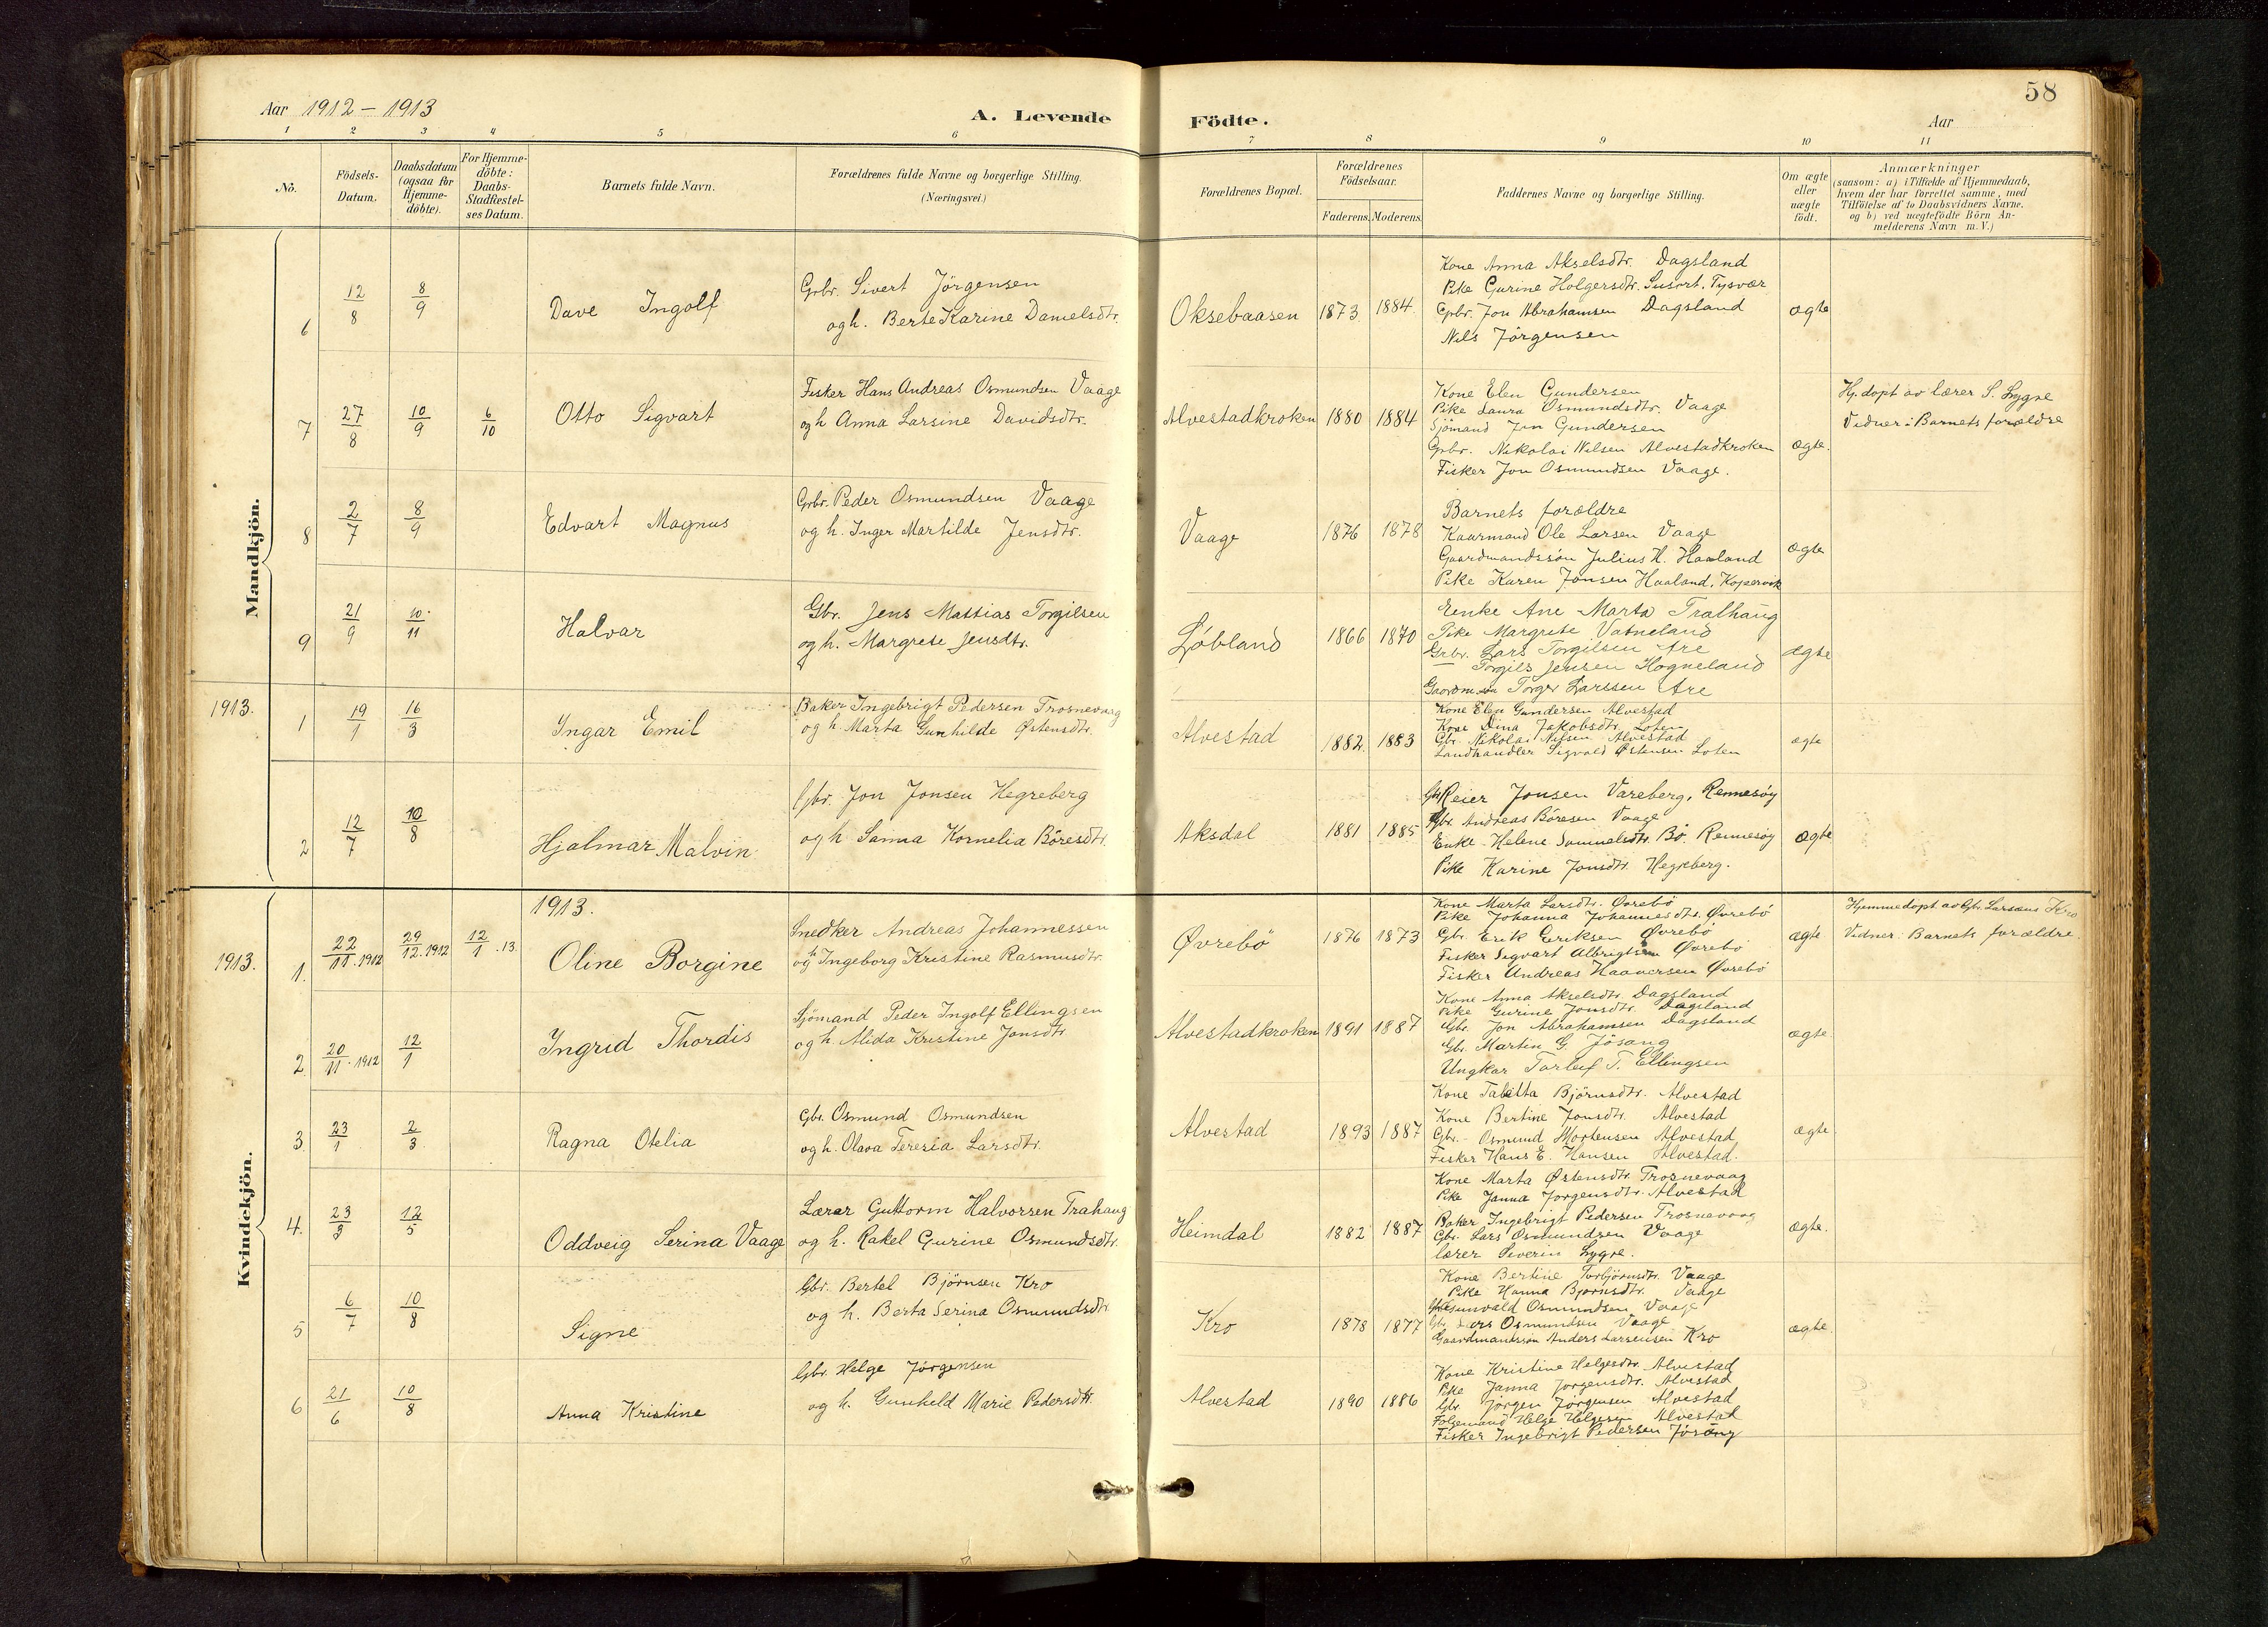 58
Aar 1912 – 1913
A. Levende Födte.
Aar
1 2 3 4 5 6 7 8 9 10 11
No.
Födsels-Datum.
Daabsdatum (ogsaa for Hjemme-döbte).
For Hjemme-döbte: Daabs-Stadfæstel-ses Datum.
Barnets fulde Navn.
Forældrenes fulde Navne og borgerlige Stilling. (Næringsvei.)
Forældrenes Bopæl.
Forældrenes Födselsaar.
Faderens. Moderens.
Faddernes Navne og borgerlige Stilling.
Om ægte eller uægte födt.
Anmærkninger
(saasom: a) i Tilfælde af Hjemmedaab,
hvem der har forrettet samme, med
Tilföielse af to Daabsvidners Navne,
og b) ved uægtefödte Börn An-
melderens Navn m. V.)
Mandkjön.
6 12/8 8/9 Dave Ingolf
Grbr. Sivert Jörgensen
og h. Berte Karine Danielsdtr.
Oksebaasen 1873 1884
Kone Anna Akselsdtr. Dagsland
Pike Gurine Holgersdtr. Susort, Tysvær
Grbr. Jon Abrahamsen Dagsland
Nils Jörgensen
ægte
7 27/8 10/9 6/10 Otto Sigvart
Fisker Hans Andreas Osmundsen Vaage
og h Anna Larsine Davidsdtr.
Alvestadkroken 1880 1884
Kone Elen Gundersen
Pike Laura Osmundsdtr. Vaage
Sjömand Jon Gundersen
Grbr. Nikolai Nilsen Alvestadkroken
Fisker Jon Osmundsen Vaage.
ægte.
Hj. döpt av lærer S. Lygre
Vidner: Barnets forældre
8 2/7 8/9 Edvart Magnus
Grbr. Peder Osmundsen Vaage
og h. Inger Martilde Jensdtr.
Vaage 1876 1878
Barnets forældre
Kaarmand Ole Larsen Vaage
Gaardmandssön Julius K. Haaland
Pike Karen Jonsen Haaland, Kopervik
ægte
9 21/9 10/11 Halvar
Gbr. Jens Mattias Torgilsen
og h. Margrete Jensdtr.
Löbland 1866 1870
Enke Ane Marta Tralhaug
Pike Margrete Vatneland
Grbr. Lars Torgilsen Are
— Torgils Jensen Hogneland
Gaardm.sön Torger Larssen Are
ægte
1913.
1 19/1 16/3 Ingar Emil
Baker Ingebrigt Pedersen Trosnevaag
og h. Marta Gunhilde Østensdtr.
Alvestad 1882. 1883
Kone Elen Gundersen Alvestad
Kone Dina Jakobsdtr. Loten
Gbr. Nikolai Nilsen Alvestad
Landhandler Sigvald Østensen Loten
ægte
2 12/7 10/8 Hjalmar Malvin
Gbr. Jon Jonsen Hegreberg
og h. Sanna Kornelia Böresdtr.
Aksdal 1881 1885
Gbr. Reier Jonsen Vareberg, Rennesöy
Gbr. Andreas Böresen Vaage
Enke Helene Samuelsdtr. Bö. Rennesöy
Pike Karine Jonsdtr. Hegreberg.
ægte
Kvindekjön.
1913.
1913.
1. 22/11.1912 29/12.1912 12/1.13 Oline Borgine
Snedker Andreas Johannessen
og h Ingeborg Kristine Rasmusdtr.
Øvrebö 1876 1873
Kone Marta Larsdtr. Øvrebö
Pike Johanna Johannesdtr. Øvrebö
Gbr. Erik Eriksen Øvrebö
Fisker Sigvart Albrigtsen Øvrebö
Fisker Andreas Haaversen Øvrebö
ægte
Hjemmedöpt av Gbr. Larsens Kro
Vidner: Barnets forældre
2. 20/11.1912 12/1 Ingrid Thordis
Sjömand Peder Ingolf Ellingsen
og h. Alida Kristine Jonsdtr
Alvestadkroken 1891 1887
Kone Anna Akselsdtr. Dagsland
Pike Gurine Jonsdtr. Dagsland
Gbr. Jon Abrahamsen Dagsland
Gbr. Martin G. Jösang
Ungkar Torleif T. Ellingsen
ægte.
3 23/1 2/3 Ragna Otelia
Gbr. Osmund Osmundsen
og h. Olava Teresia Larsdtr.
Alvestad 1893 1887
Kone Tabitta Björnsdtr. Alvestad
Kone Bertine Jonsdtr. Alvestad
Gbr. Osmund Mortensen Alvestad
Fisker Hans E. Hansen Alvestad.
ægte.
4. 23/3 12/5 Oddveig Serina Vaage
Lærer Guttorm Halvorsen Trahaug
og h. Rakel Gurine Osmundsdtr.
Heimdal 1882 1887
Kone Marta Østensdtr. Trosnevaag
Pike Janna Jorgensdtr. Alvestad
Baker Ingebrigt Pedersen Trosnevaag
Gbr. Lars Osmundsen Vaage
lærer Severin Lygre.
ægte.
5 6/7 10/8 Signe
Gbr. Bertel Björnsen Kro
og h. Berta Serina Osmundsdtr
Kro 1878 1877
Kone Bertine Torbjörnsdtr. Vaage
Pike Hanna Bjornsdtr. Vaage
Gunvald Osmundsen Vaage
Gbr. Lars Osmundsen Vaage
Gaardmandssön Anders Larsensen Kro
ægte.
6 21/6 10/8 Anna Kristine
Gbr. Helge Jörgensen
og h. Gunheld Marie Pedersdtr.
Alvestad 1890 1886
Kone Kristine Helgesdtr. Alvestad
Pike Janna Jorgensdtr. Alvestad
Gbr. Jörgen Jörgensen Alvestad
Folgemand Helge Helgesen Alvestad
Fisker Ingebrigt Pedersen Jösang